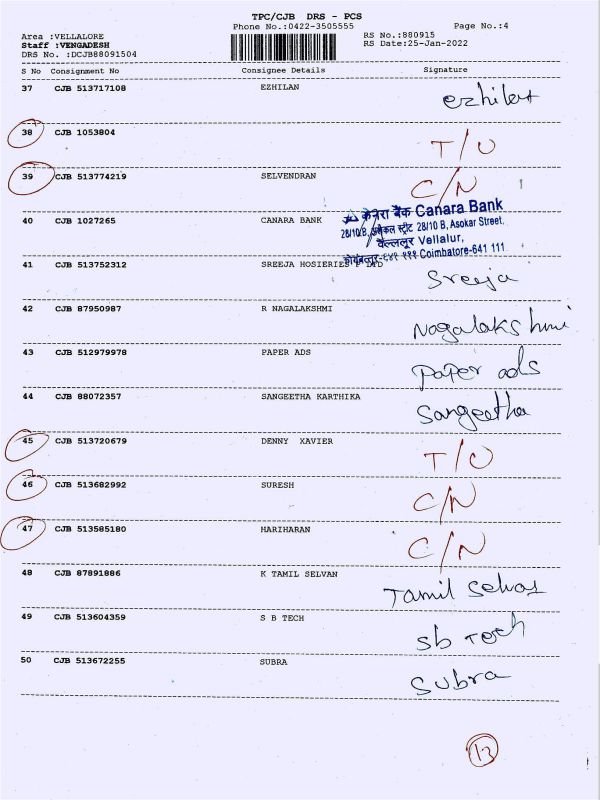 TPC/CJB DRS - PCS
Phone No.:0422-3505555 Page No.:4
Area :VELLALORE RS No.:880915
Staff :VENGADESH RS Date:25-Jan-2022
DRS No. :DCJB88091504
S No Consignment No Consignee Details Signature
37 CJB 513717108 EZHILAN ezhilan
38 CJB 1053804 T/O
39 CJB 513774219 SELVENDRAN C/N
केनरा बैंक Canara Bank
40 CJB 1027265 CANARA BANK 28/10 B, अशोकर स्ट्रीट 28/10 B, Asokar Street,
वेल्ललूर Vellalur,
कोयंबत्तूर-६४१ १११ Coimbatore-641 111
41 CJB 513752312 SREEJA HOSIERIES P LTD Sreeja
42 CJB 87950987 R NAGALAKSHMI Nagalakshmi
43 CJB 512979978 PAPER ADS paper ads
44 CJB 88072357 SANGEETHA KARTHIKA Sangeetha
45 CJB 513720679 DENNY XAVIER T/O
46 CJB 513682992 SURESH C/N
47 CJB 513585180 HARIHARAN C/N
48 CJB 87891886 K TAMIL SELVAN Tamil Selvan
49 CJB 513604359 S B TECH sb Tech
50 CJB 513672255 SUBRA Subra
13